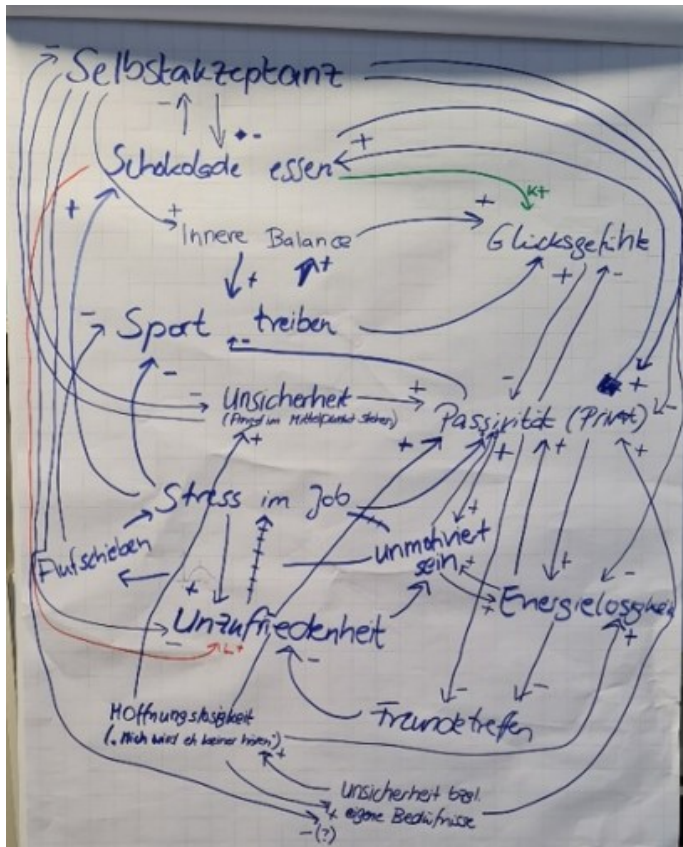 Selbstakzeptanz
Schokolade essen
K+
Innere Balance
Glücksgefühle
Sport treiben
Unsicherheit
(Angst im Mittelpunkt stehen)
Passivität (Privat)
Stress im Job
Aufschieben
unmotiviert
sein
Unzufriedenheit
Energielosigkeit
L+
Hoffnungslosigkeit
("Mich wird eh keiner hören")
Freunde treffen
Unsicherheit bzgl.
eigene Bedürfnisse
-(?)